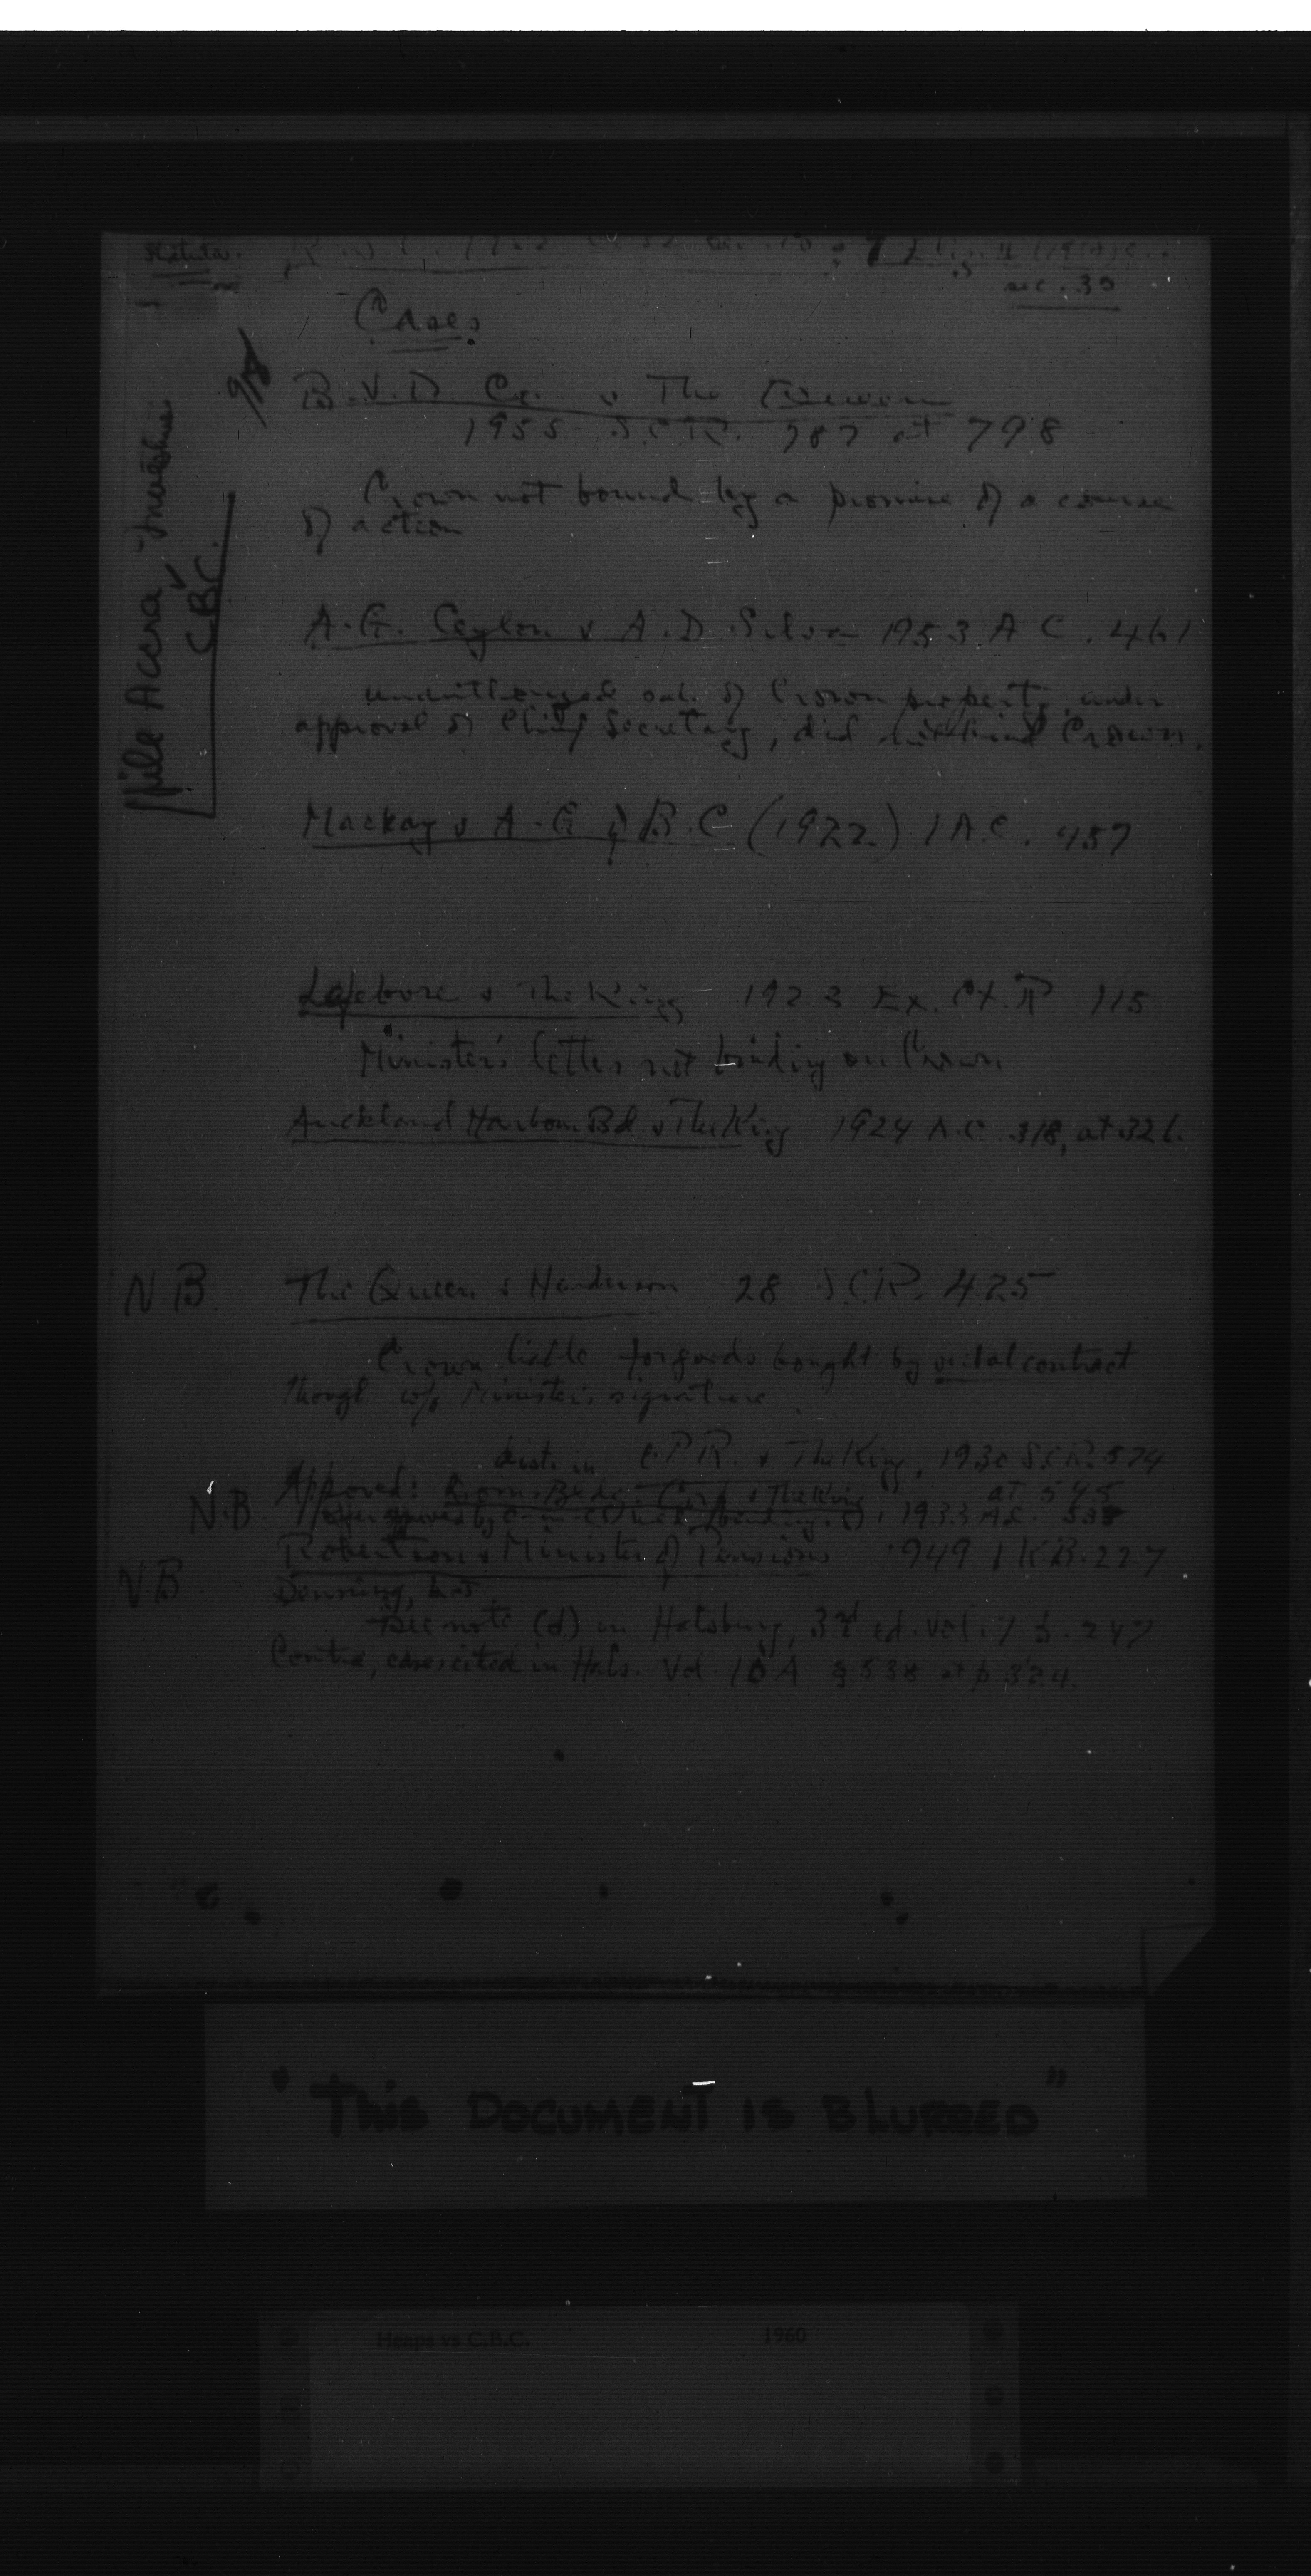 Statutes.
sec. 30
Cases
B.V.D. Co. v The Queen
1955 S.C.R. 787 at 798
Crown not bound by a promise of a course
of action
File Accra v
C.B.C.
A.G. Ceylon v A.D. Silva 1953 A C. 461
unauthorized sale of Crown property, under
approval of Chief Secretary, did not bind Crown.
Mackay v A.G. of B.C (1922) 1 A.C. 457
Lefebvre v The King - 1923 Ex. Ct. R 115
Minister's letter not binding on Crown
Auckland Harbour Bd v The King 1924 A.C. 318, at 326.
N.B. The Queen v Henderson 28 S.C.R. 425
Crown liable for goods bought by verbal contract
though w/o Minister's signature.
dist. in C.P.R. v The King, 1930 S.C.R. 574
Approved: Dom. Bldg. Corp v The King at 545
N.B. by 1933 A.C. 533
Robertson v Minister of Pensions 1949 1 K.B. 227
N.B. Denning,
See note (d) in Halsbury, 3rd ed. vol. 7 p. 247
Contra, cases cited in Hals. Vol. 10A § 538 at p 324.
"THIS DOCUMENT IS BLURRED"
Heaps vs C.B.C. 1960